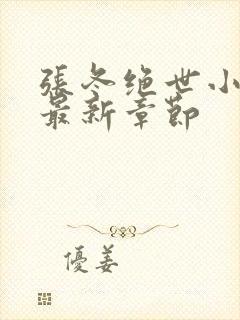 張冬绝世小
最新章節
優姜